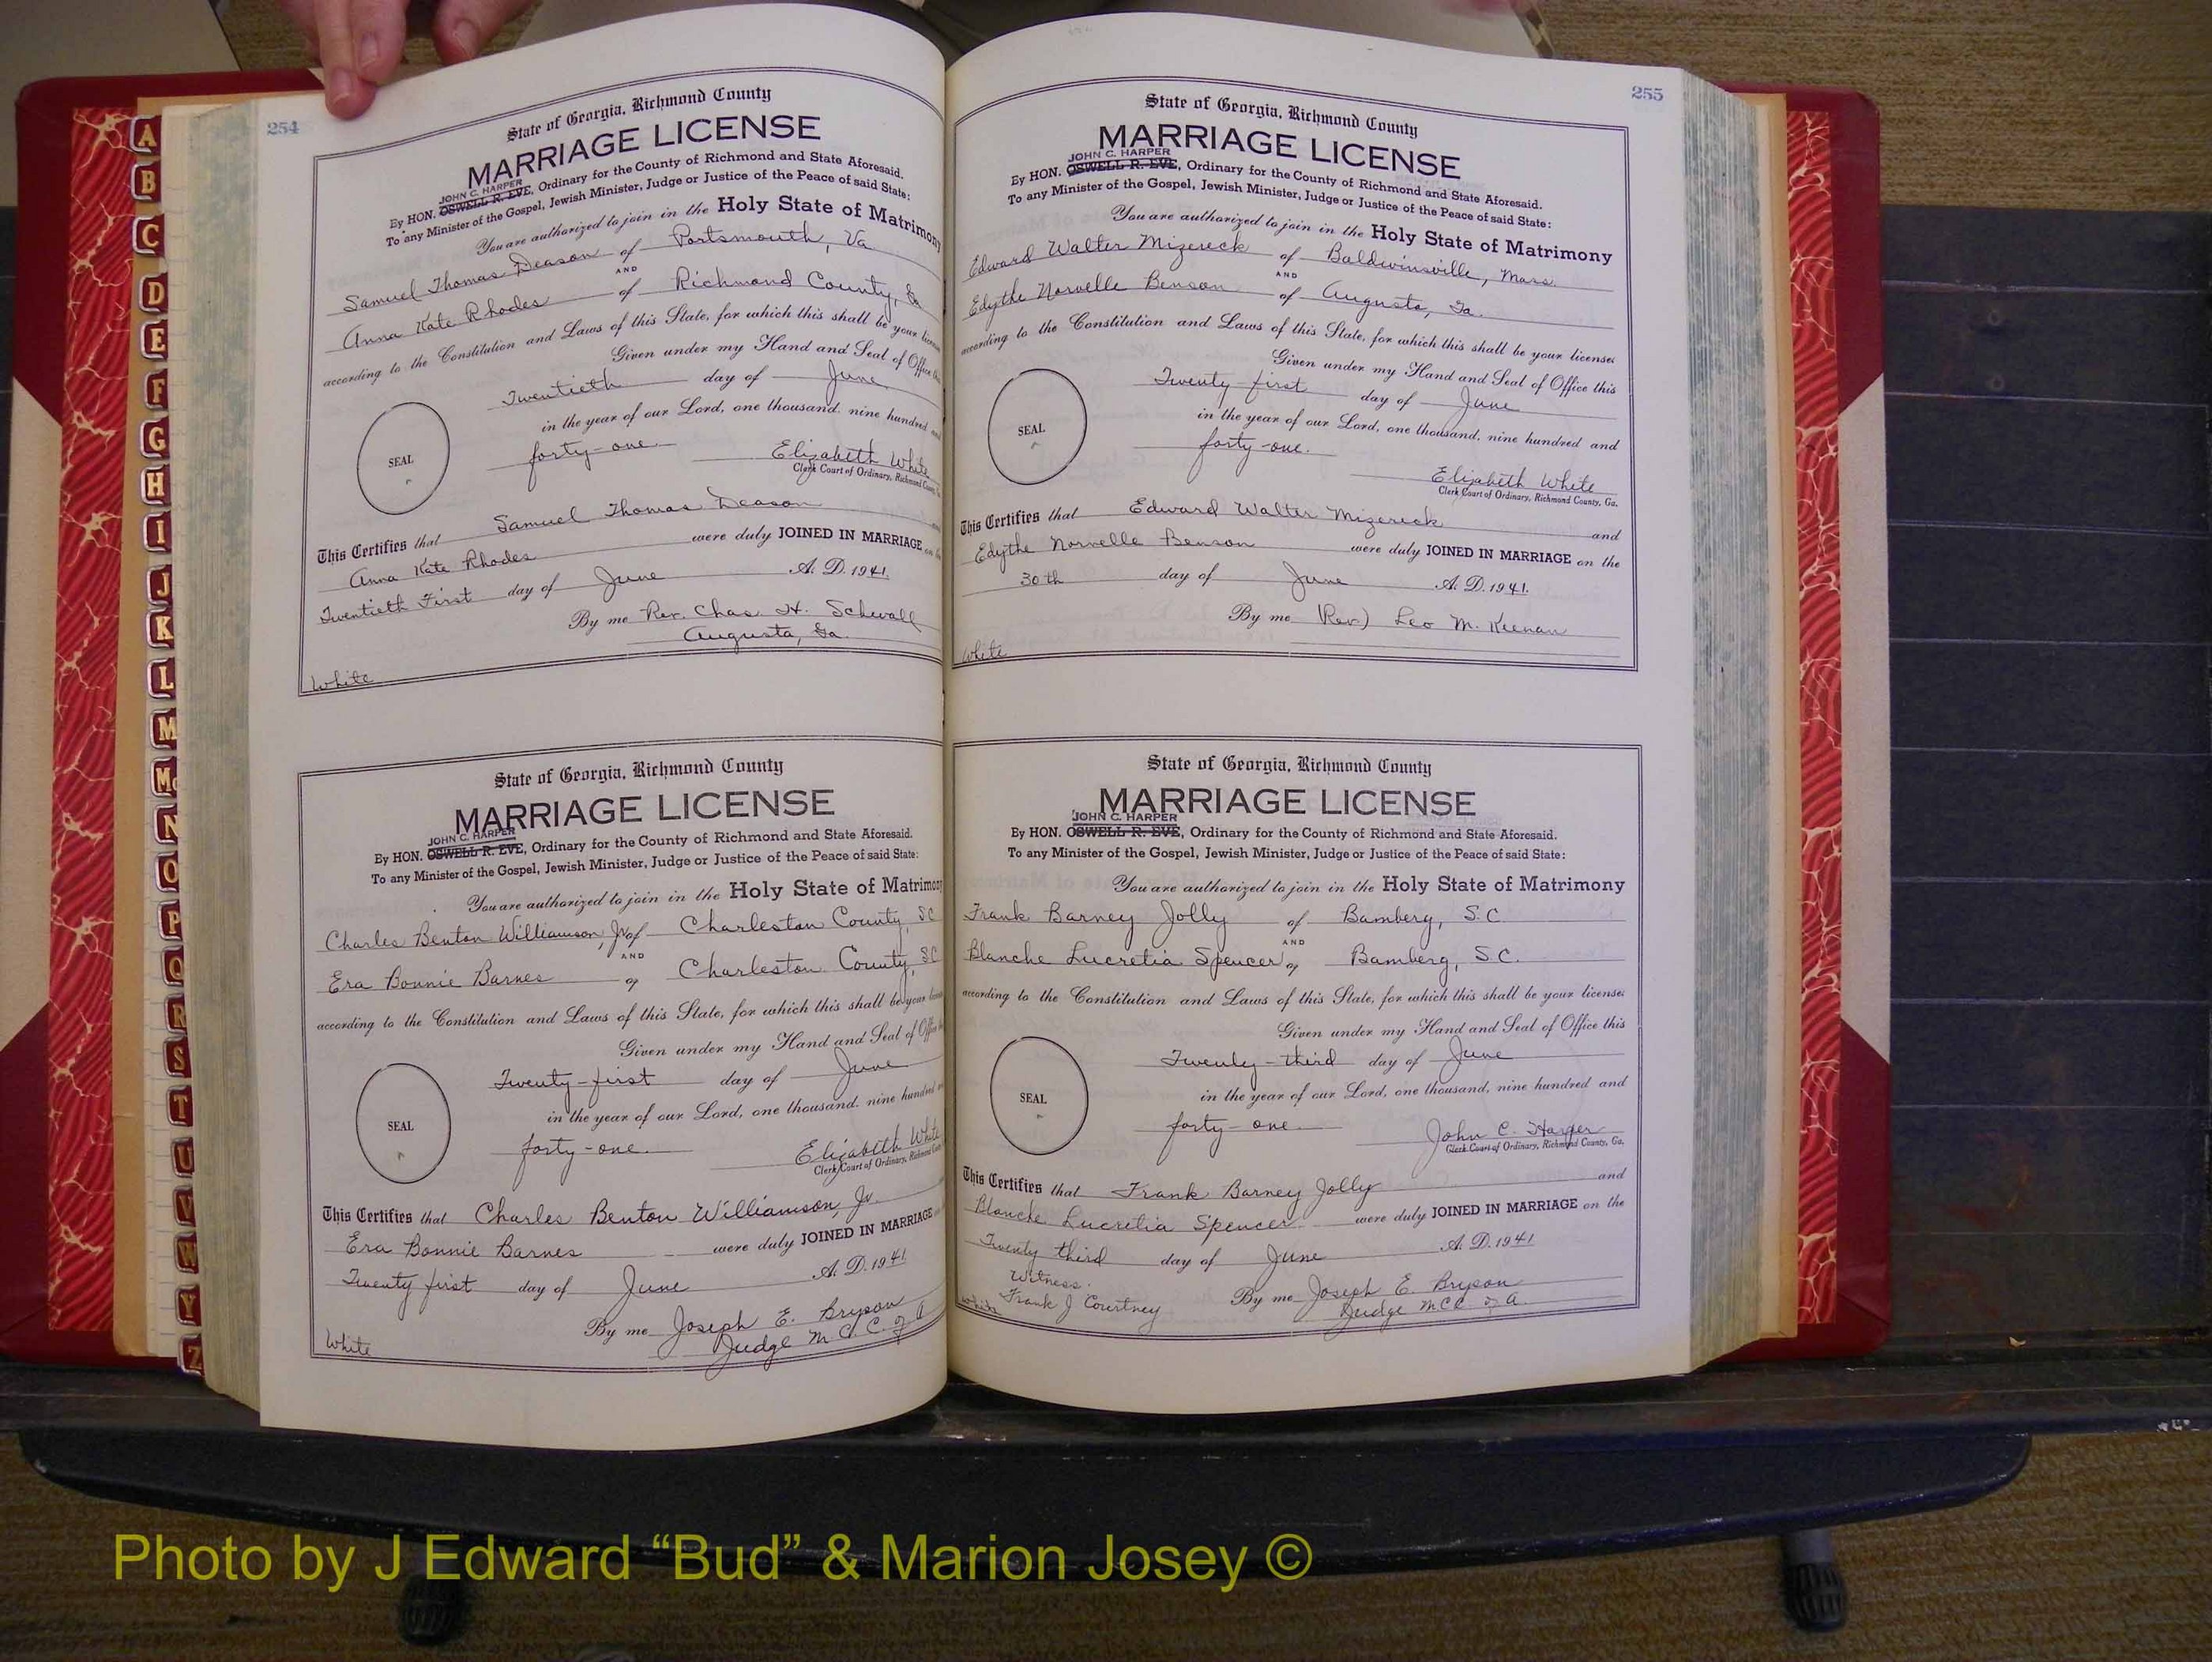 254
State of Georgia, Richmond County
MARRIAGE LICENSE
JOHN C. HARPER
By HON. OSWELL R. EVE, Ordinary for the County of Richmond and State Aforesaid.
To any Minister of the Gospel, Jewish Minister, Judge or Justice of the Peace of said State:
You are authorized to join in the Holy State of Matrimony
Samuel Thomas Deason of Portsmouth, Va
AND
Anna Kate Rhodes of Richmond County, Ga
according to the Constitution and Laws of this State, for which this shall be your
Given under my Hand and Seal of Office
Twentieth day of June
in the year of our Lord, one thousand, nine hundred
SEAL
forty-one
Elizabeth White
Clerk Court of Ordinary, Richmond
This Certifies that Samuel Thomas Deason
Anna Kate Rhodes were duly JOINED IN MARRIAGE
Twentieth First day of June A. D. 1941.
By me Rev. Chas. H. Schwall
Augusta, Ga.
White
State of Georgia, Richmond County
MARRIAGE LICENSE
JOHN C. HARPER
By HON. OSWELL R. EVE, Ordinary for the County of Richmond and State Aforesaid.
To any Minister of the Gospel, Jewish Minister, Judge or Justice of the Peace of said State:
You are authorized to join in the Holy State of Matrimony
Charles Benton Williamson, Jr of Charleston County, SC
AND
Era Bonnie Barnes of Charleston County, SC
according to the Constitution and Laws of this State, for which this shall be your
Given under my Hand and Seal of Office
Twenty-first day of June
in the year of our Lord, one thousand, nine hundred
SEAL
forty-one.
Elizabeth White
Clerk Court of Ordinary, Richmond
This Certifies that Charles Benton Williamson, Jr.
Era Bonnie Barnes were duly JOINED IN MARRIAGE
Twenty first day of June A. D. 1941.
By me Joseph E. Bryson
Judge M C. C. of A
White
255
State of Georgia, Richmond County
MARRIAGE LICENSE
JOHN C. HARPER
By HON. OSWELL R. EVE, Ordinary for the County of Richmond and State Aforesaid.
To any Minister of the Gospel, Jewish Minister, Judge or Justice of the Peace of said State:
You are authorized to join in the Holy State of Matrimony
Edward Walter Mizereck of Baldwinsville, Mass.
AND
Edythe Norvelle Benson of Augusta, Ga.
according to the Constitution and Laws of this State, for which this shall be your license:
Given under my Hand and Seal of Office this
Twenty first day of June
in the year of our Lord, one thousand, nine hundred and
SEAL
forty-one.
Elizabeth White
Clerk Court of Ordinary, Richmond County, Ga.
This Certifies that Edward Walter Mizereck and
Edythe Norvelle Benson were duly JOINED IN MARRIAGE on the
30th day of June A. D. 1941.
By me (Rev.) Leo M. Keenan
White
State of Georgia, Richmond County
MARRIAGE LICENSE
JOHN C. HARPER
By HON. OSWELL R. EVE, Ordinary for the County of Richmond and State Aforesaid.
To any Minister of the Gospel, Jewish Minister, Judge or Justice of the Peace of said State:
You are authorized to join in the Holy State of Matrimony
Frank Barney Jolly of Bamberg, S.C.
AND
Blanche Lucretia Spencer of Bamberg, S.C.
according to the Constitution and Laws of this State, for which this shall be your license:
Given under my Hand and Seal of Office this
Twenty-third day of June
in the year of our Lord, one thousand, nine hundred and
SEAL
forty-one.
John C. Harper
Clerk Court of Ordinary, Richmond County, Ga.
This Certifies that Frank Barney Jolly and
Blanche Lucretia Spencer were duly JOINED IN MARRIAGE on the
Twenty third day of June A. D. 1941
Witness.
Frank J Courtney
By me Joseph E. Bryson
Judge MCC of A.
White
A
B
C
D
E
F
G
H
I
J
K
L
M
Mc
N
O
P
Q
R
S
T
U
V
W
Y
Z
Photo by J Edward “Bud” & Marion Josey ©